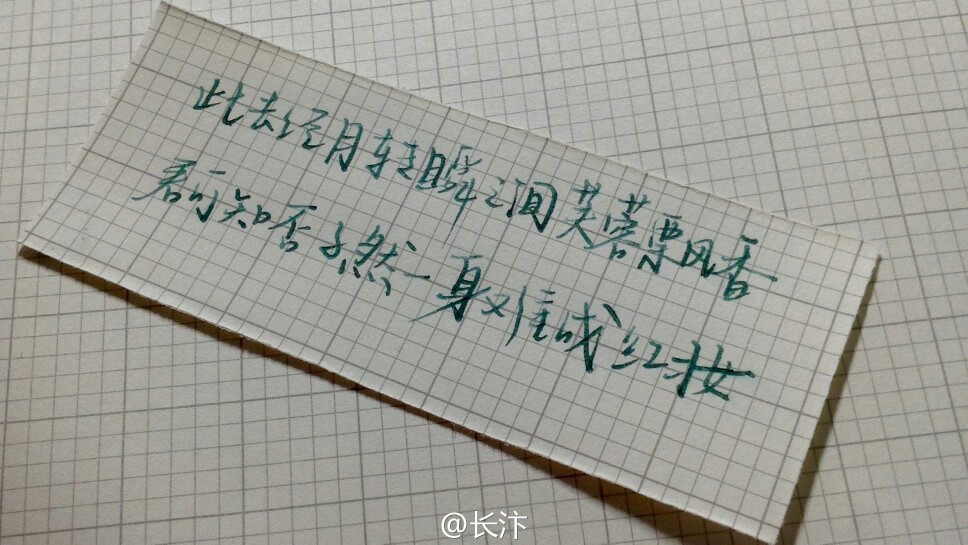 此去经月轻瞬之间芙蓉栗风香
君可知否孑然一身难成红妆
@长汴